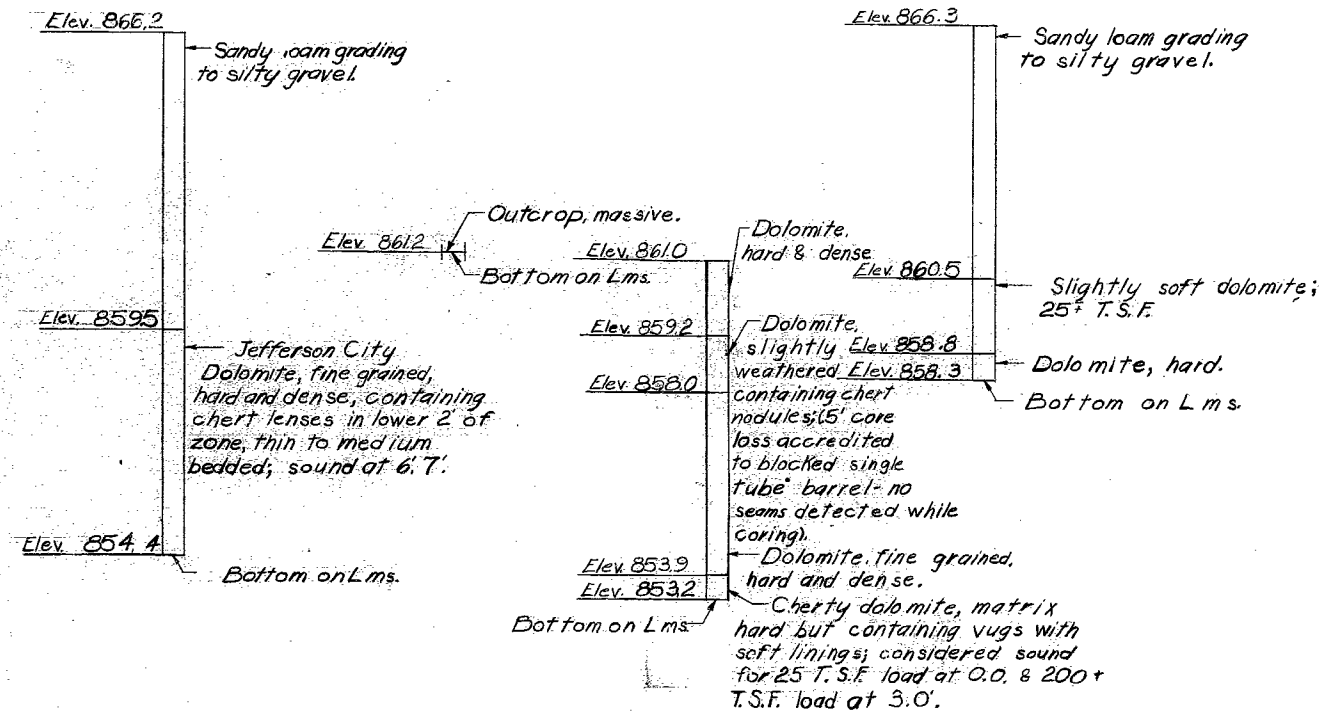 Elev. 866.2
Sandy loam grading
to silty gravel.
Elev. 859.5
Jefferson City
Dolomite, fine grained,
hard and dense, containing
chert lenses in lower 2' of
zone, thin to medium
bedded; sound at 6.7'.
Elev. 854.4
Bottom on Lms.
Outcrop, massive.
Elev. 861.2
Bottom on Lms.
Elev. 861.0
Dolomite,
hard & dense
Elev. 859.2
Dolomite,
slightly
weathered
containing chert
nodules; (.5' core
loss accredited
to blocked single
tube barrel - no
seams detected while
coring).
Elev. 858.0
Dolomite, fine grained,
hard and dense.
Elev. 853.9
Elev. 853.2
Cherty dolomite, matrix
hard but containing vugs with
soft linings; considered sound
for 25 T.S.F. load at 0.0. & 200+
T.S.F. load at 3.0'.
Bottom on Lms.
Elev. 866.3
Sandy loam grading
to silty gravel.
Elev. 860.5
Slightly soft dolomite;
25+ T.S.F.
Elev. 858.8
Dolomite, hard.
Elev. 858.3
Bottom on Lms.